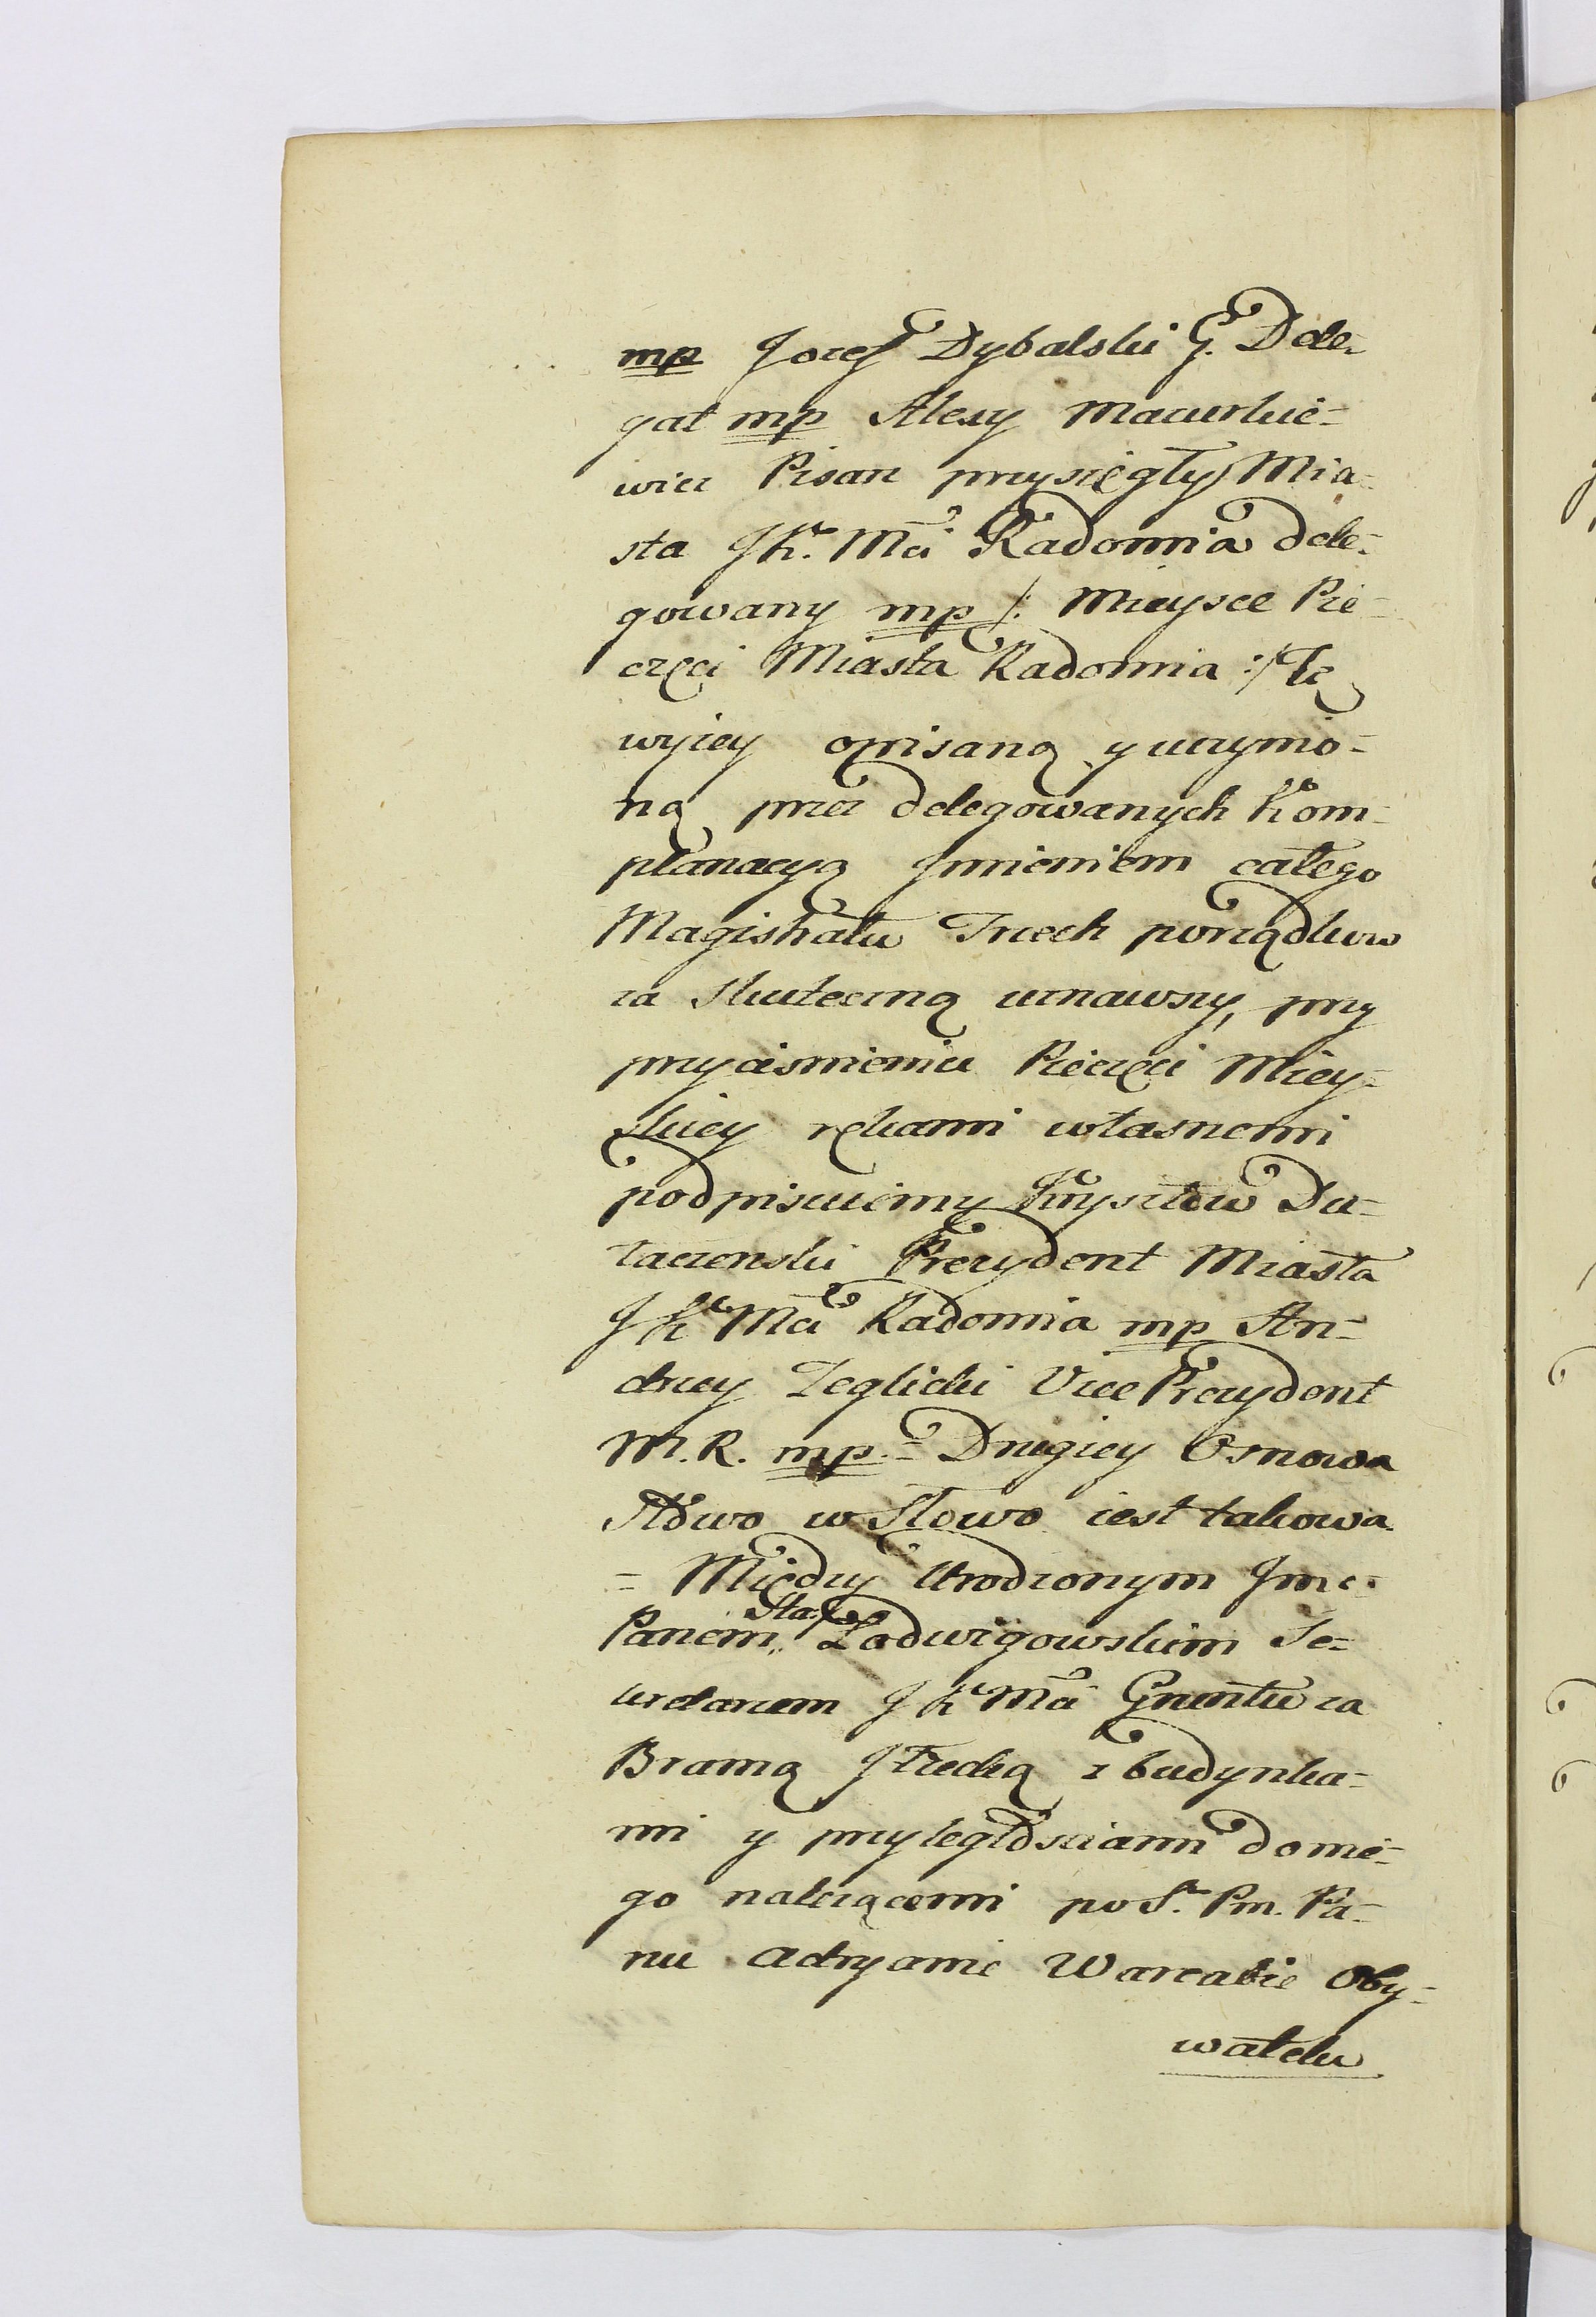 mp Jozef Dybalski G. Dele-
gat mp Alexy Macurkie-
wicz Pisarz przysięgły Mia-
sta J K. Mci Radomia dele-
gowany mp /: Mieysce Pie-
częci Miasta Radomia :/ Tę
wyzey opisaną y uczynio-
ną przez delegowanych Kom-
planacyą Jmieniem całego
Magistratu Trzech porządkow
za skuteczną uznawszy, przy
przyciśnieniu Pieczęci Miey-
skiey rękami własnemi
podpisuiemy Krysztow Du-
taczenski Prezydent Miasta
J K Mci Radomia mp An-
drzey Zeglicki Vice Prezydent
M. R. mp. = Drugiey Osnowa
Słowo w Słowo iest takowa
= Między Urodzonym Jmc.
Panem Sta: Lodwigowskim Se-
kredarzem J K Mci Gruntu za
Bramą Jłżecką z budynka-
mi y przyległościami do nie-
go należącemi po S. Pm. Pa-
nu Adryanie Warcabie Oby-
watelu